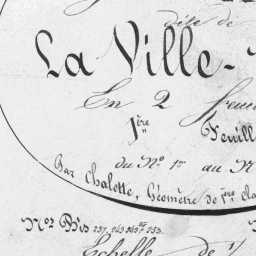 dite de
La Ville-
En 2 feuil
1ère Feuill
du No. 1er au N
Par Chalette, Géomètre de 1ère Cla
Nos. Bis 237, 243, 253.
Echelle de 1/